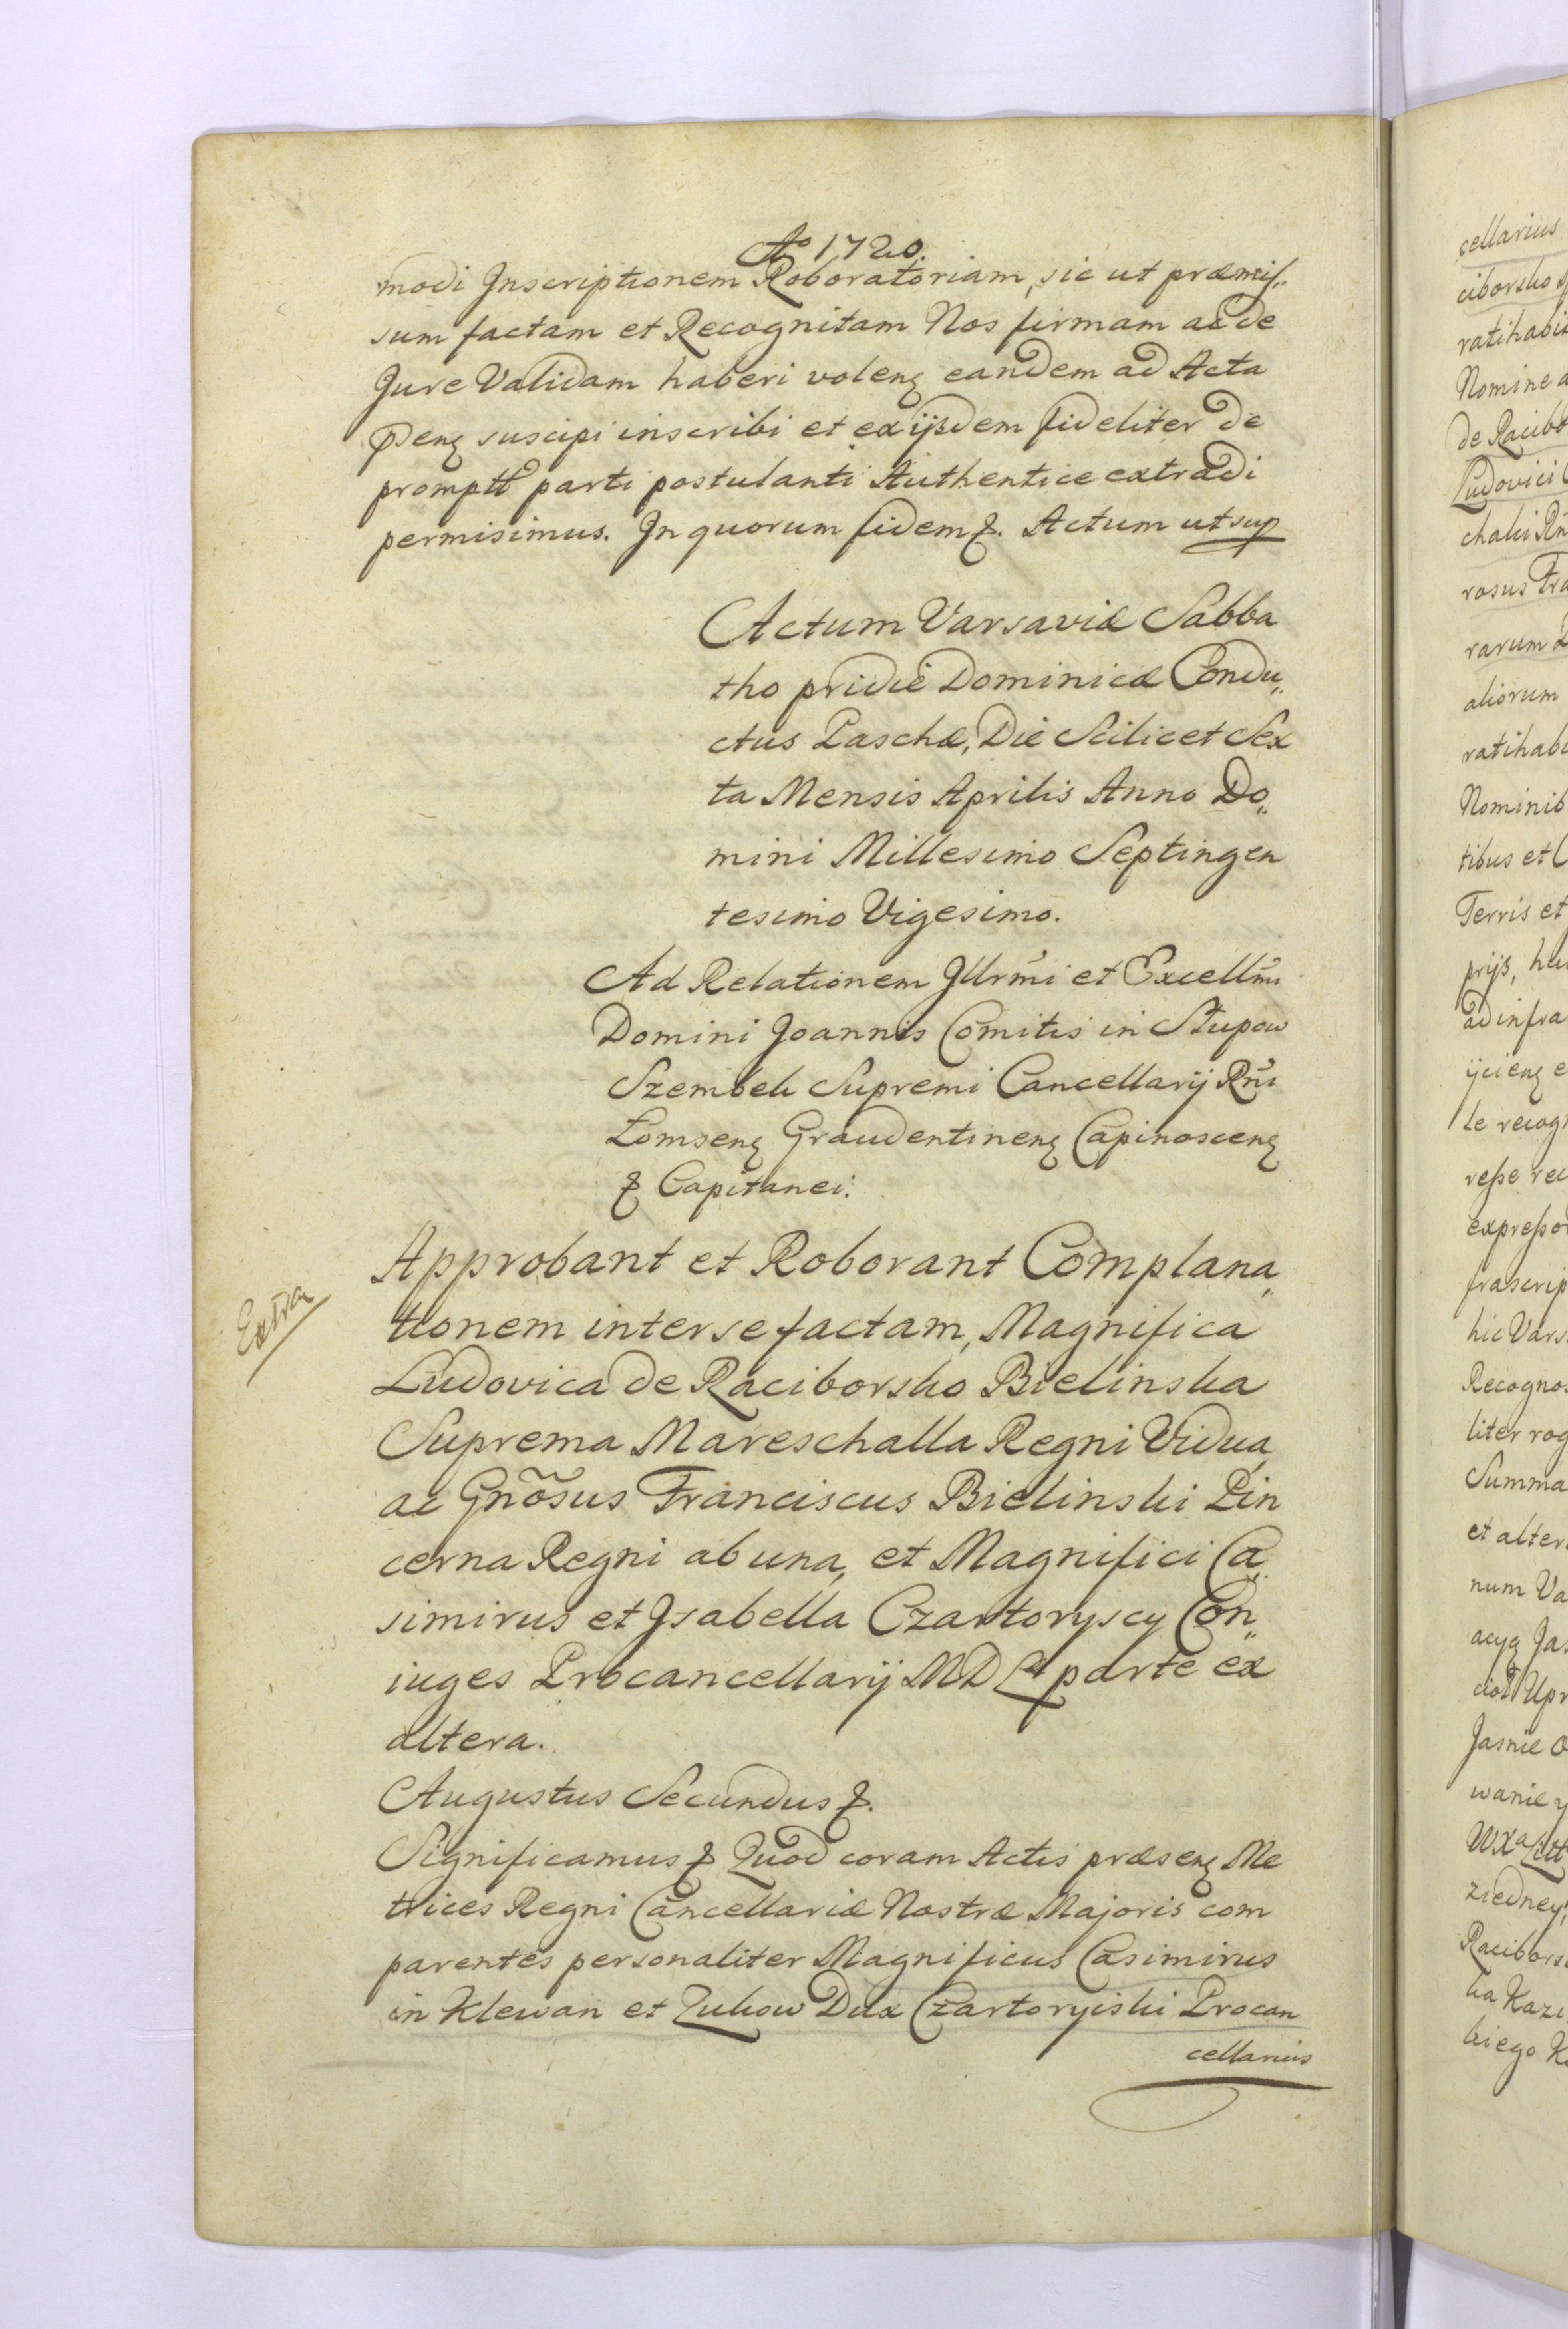 Ao 1720.
modi Inscriptionem Roboratoriam, sic ut præmis„
sum factam et Recognitam Nos firmam ac de
Jure Validam haberi volenꝫ eandem ad Acta
pꝛdenꝫ suscipi inscribi et ex ijsdem fideliter de
promptt parti postulanti Authentice extradi
permisimus. In quorum fidem &. Actum ut sup
Actum Varsaviæ Sabba
tho pridie Dominicæ Condu„
ctus Paschæ, Die Scilicet Sex
ta Mensis Aprilis Anno Do„
mini Millesimo Septingen
tesimo Vigesimo.
Ad Relationem Illrmi et Excellmi
Domini Joannis Comitis in Słupow
Szembek Supremi Cancellarij Rni
Łomsenꝫ Graudentinenꝫ Capinoscenꝫ
& Capitanei.
Extra
Approbant et Roborant Complana„
tionem inter se factam, Magnifica
Ludovica de Raciborsko Bielinska
Suprema Mareschalla Regni Vidua,
ac Gnõsus Franciscus Bielinski Pin
cerna Regni ab una, et Magnifici Ca„
simirus et Isabella Czartoryscy Con„
iuges Procancellarij MD Lt parte ex
altera.
Augustus Secundus &.
Significamus & Quod coram Actis præsenꝫ Me
trices Regni Cancellariæ Nostræ Majoris com
parentes personaliter Magnificus Casimirus
in Klewan et Zukow Dux Czartoryiski Procan
cellarius
cellarius
ciborsko
ratihabi
Nomine a
de Racibo
Ludovici
chalci Rni
rosus Fra
rarum
aliorum
ratihabi
Nominib
tibus et C
Terris et
prijs, hu
ad infra
ijcienꝫ e
le recog
resse rec
expresso
frascrip
hic Vars
Recognos
liter rog
Summa
et alter
num Va
acyą Jas
Upr
Jasnie O
wanie y
WXa Litt
ziedney
Racibors
ka Kazi
kiego K